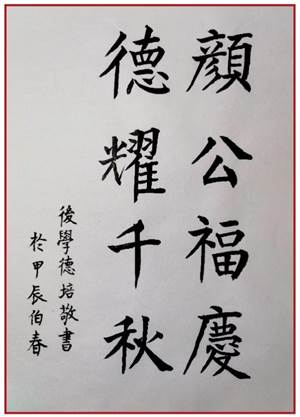 顔公福慶
德耀千秋
後學德培敬書
於甲辰伯春